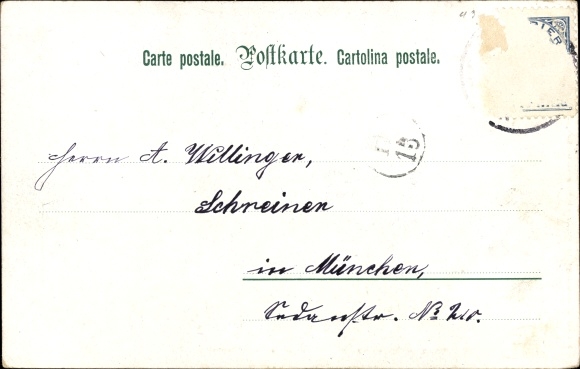 Carte postale. Postkarte. Cartolina postale.
Herrn A. Willinger,
Schreiner
in München,
Sedanstr. No